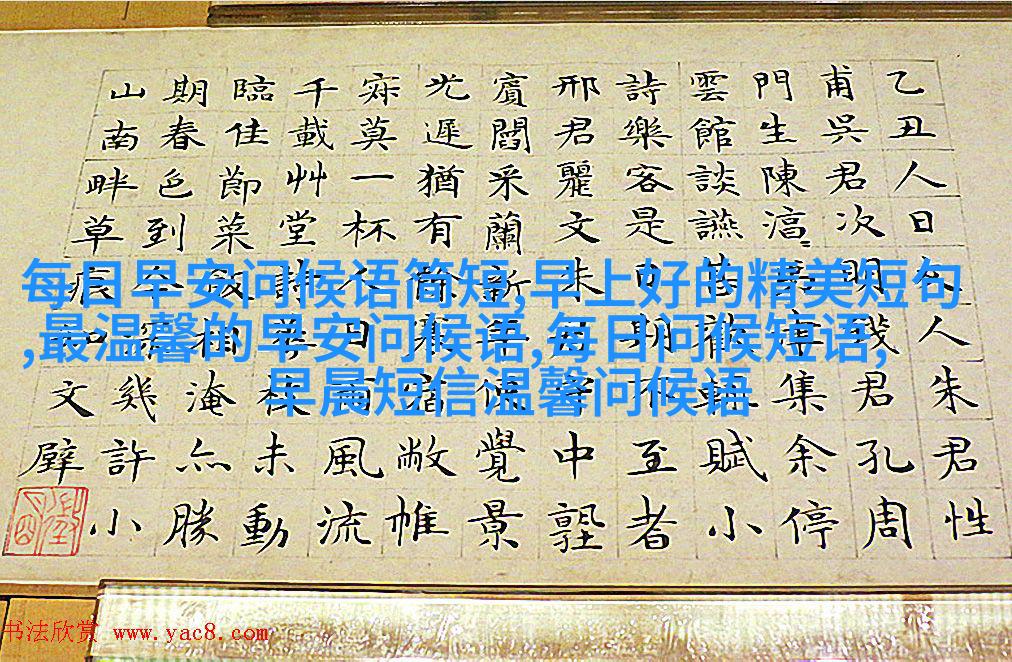 每日早安问候语简短,早上好的精美短句
,最温馨的早安问候语,每日问候短语,
早晨短信温馨问候语
乙丑人日人朱君性
甫吳君次明君孔周
門生陳君集余停
雲館談讌賦小
詩樂客是日期不至者
邢君麗文朱中
賓閻采蘭新年覺景
光遲猶有餘敝帷
寂莫一杯人日雨風流
千載艸堂詩未動
臨佳節菜飯相淹亦勝
期春色到今幾許小
山南畔草痕文壁
书法欣赏 www.yac8.com